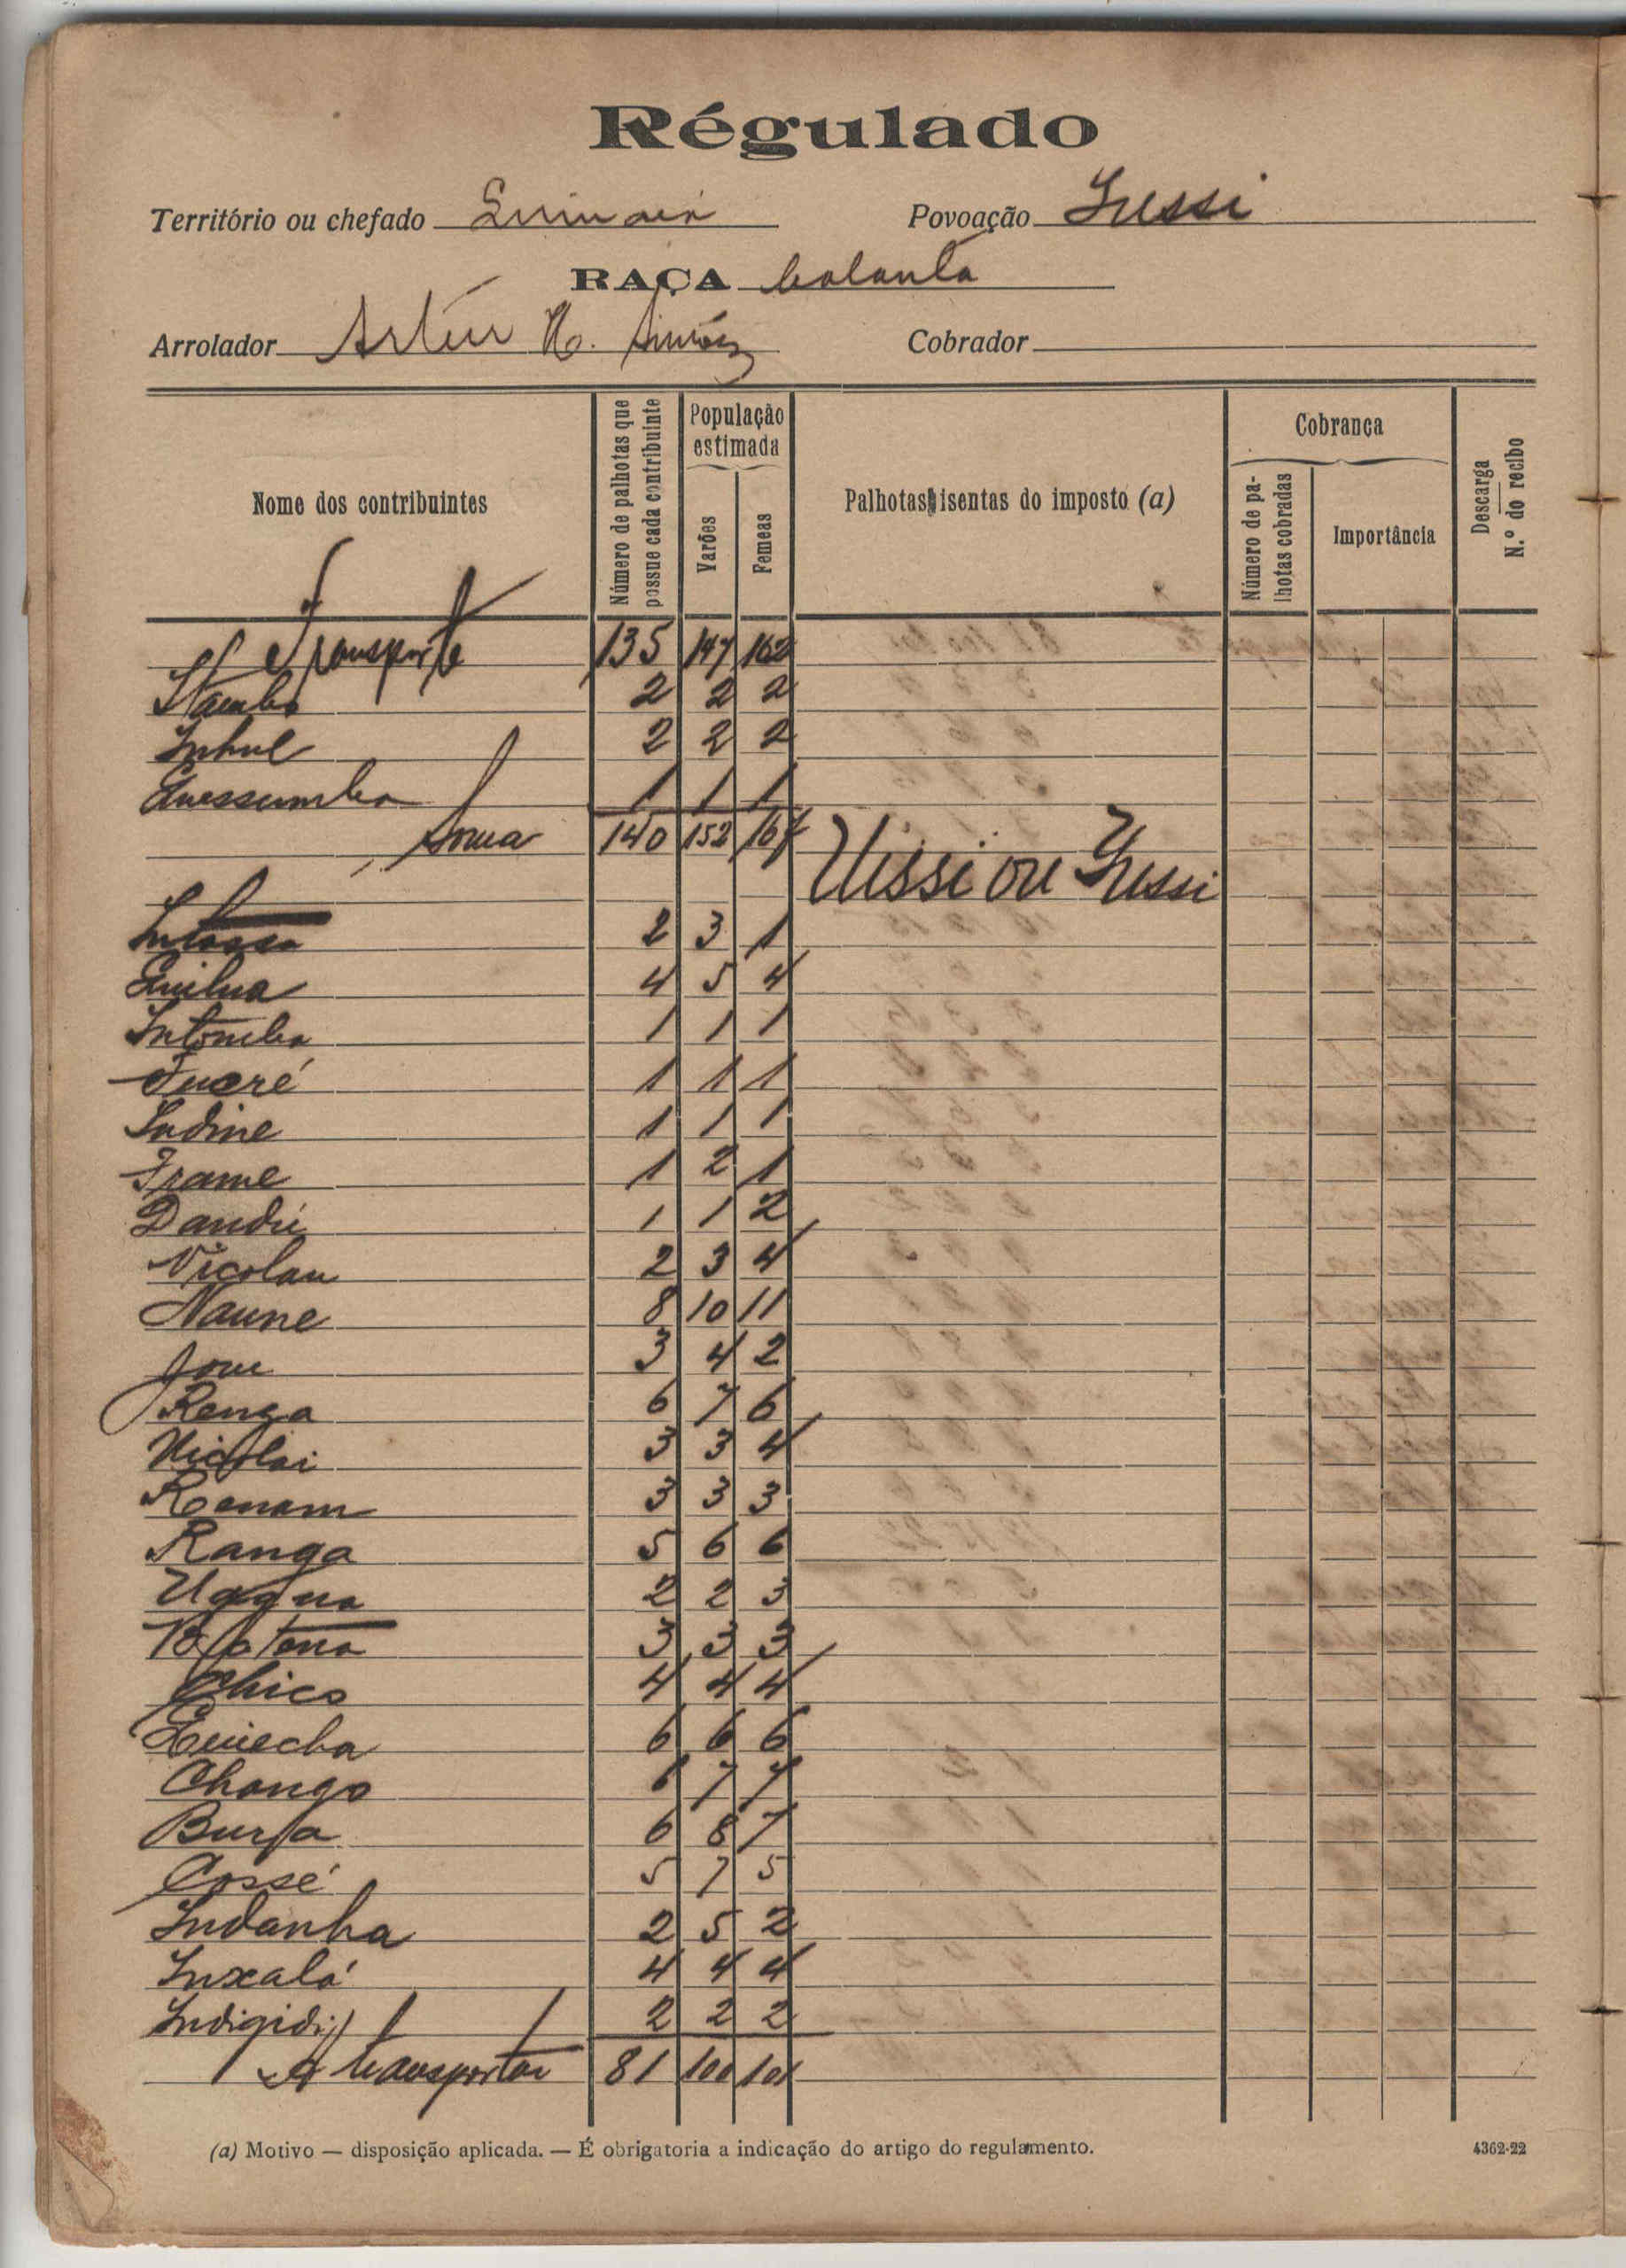 Régulado
Território ou chefado Povoação Iussi
RAÇA balanta
Arrolador Artur N. Simões Cobrador
Nome dos contribuintes
Número de palhotas que possue cada contribuinte
População estimada
Varões
Femeas
Palhotas isentas do imposto (a)
Cobrança
Número de palhotas cobradas
Importância
Descarga
N.º do recibo
Transporte 135 147 162
2 2 2
Inhul 2 2 2
Quessumba 1 1 1
Soma 140 152 167
Uissi ou Iussi
2 3 1
4 5 4
Intomba 1 1 1
1 1 1
Indine 1 1 1
Irame 1 2 1
Dandú 1 1 2
Nicolau 2 3 4
Naune 8 10 11
3 4 2
Renga 6 7 6
Nicolai 3 3 4
Renam 3 3 3
Ranga 5 6 6
2 2 3
3 3 3
Chico 4 4 4
6 6 6
Chango 6 7 7
6 8 7
Cossé 5 7 5
Indanha 2 5 2
Inxalá 4 4 4
2 2 2
A transportar 81 100 101
(a) Motivo — disposição aplicada. — É obrigatoria a indicação do artigo do regulamento.
4362-22